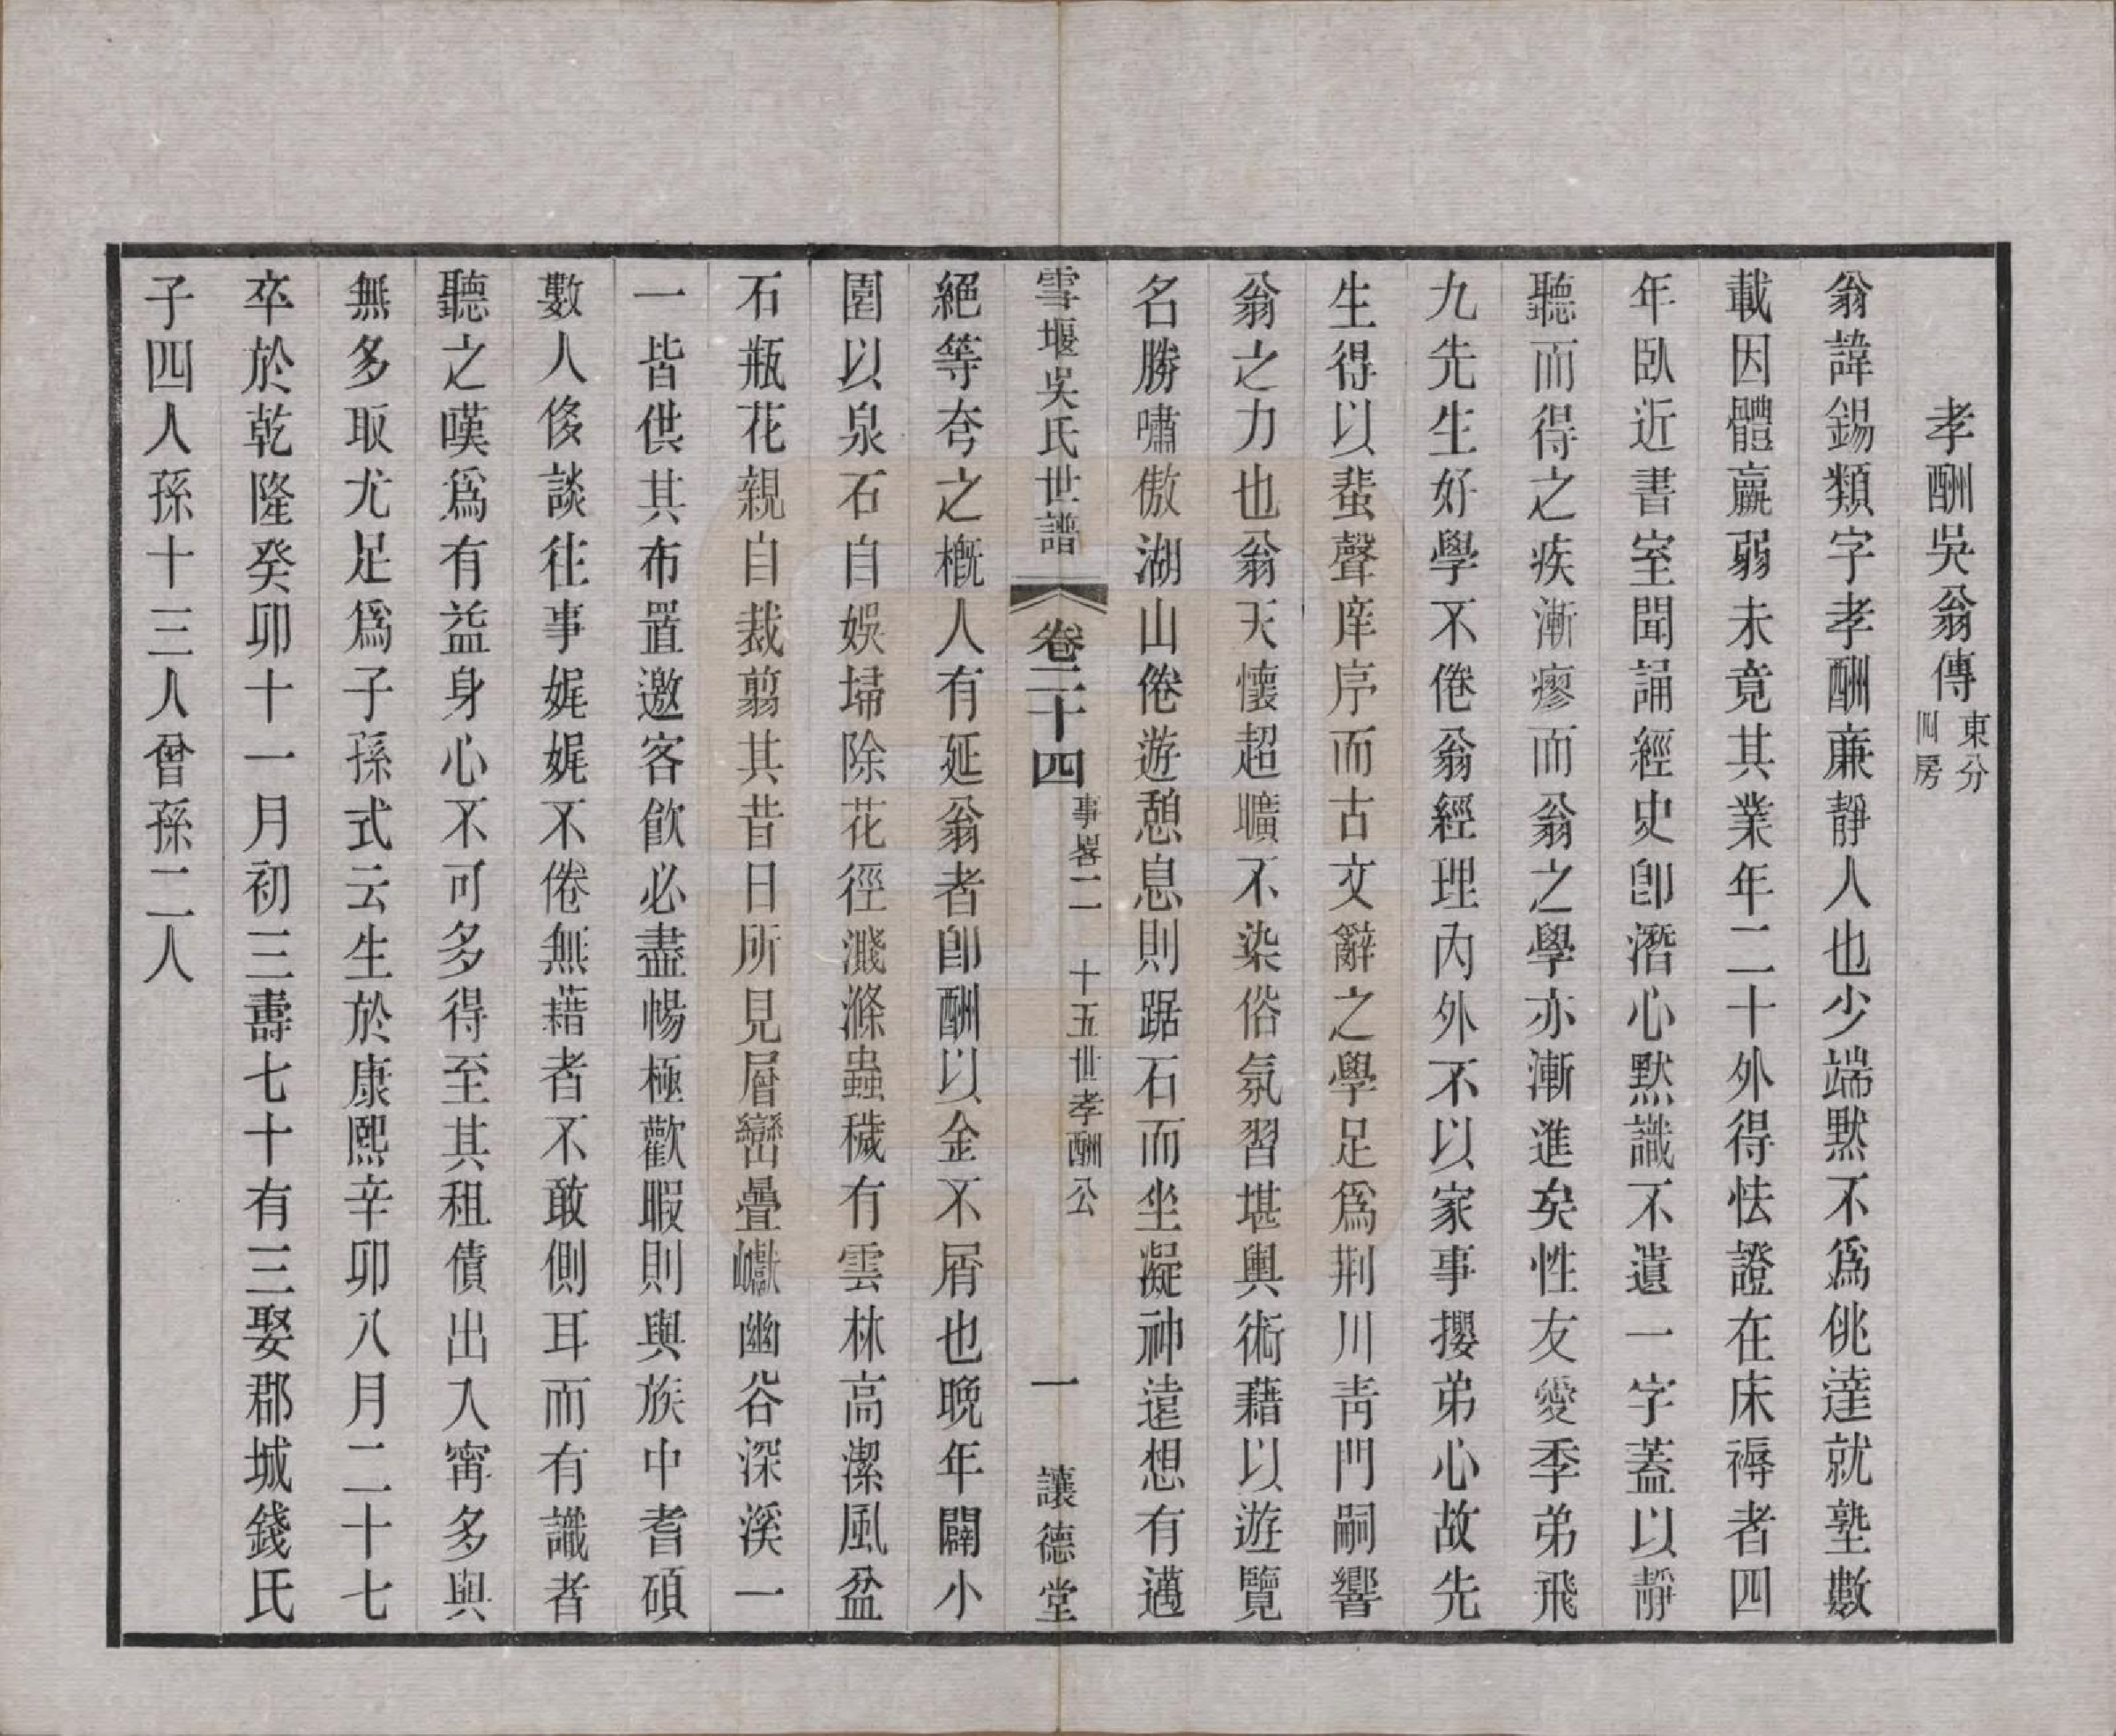 孝酬吳翁傳東分四房
翁諱錫類字孝酬廉靜人也少端默不爲佻達就塾數
載因體羸弱未竟其業年二十外得怯證在床褥者四
年臥近書室聞誦經史卽潛心默識不遺一字蓋以靜
聽而得之疾漸瘳而翁之學亦漸進矣性友愛季弟飛
九先生好學不倦翁經理內外不以家事攖弟心故先
生得以蜚聲庠序而古文辭之學足爲荆川靑門嗣響
翁之力也翁天懷超曠不染俗氛習堪輿術藉以遊覽
名勝嘯傲湖山倦遊憩息則踞石而坐凝神遠想有邁
雪堰吳氏世譜 卷二十四 事畧二 十五世孝酬公 一 讓德堂
絕等夸之槪人有延翁者卽酬以金不屑也晚年闢小
園以泉石自娛埽除花徑濺滌蟲穢有雲林高潔風盆
石瓶花親自裁翦其昔日所見層巒疊巘幽谷深溪一
一皆供其布置邀客飮必盡暢極歡暇則與族中耆碩
數人倭談往事娓娓不倦無藉者不敢側耳而有識者
聽之嘆爲有益身心不可多得至其租債出入甯多與
無多取尤足爲子孫式云生於康熙辛卯八月二十七
卒於乾隆癸卯十一月初三壽七十有三娶郡城錢氏
子四人孫十三人曾孫二人